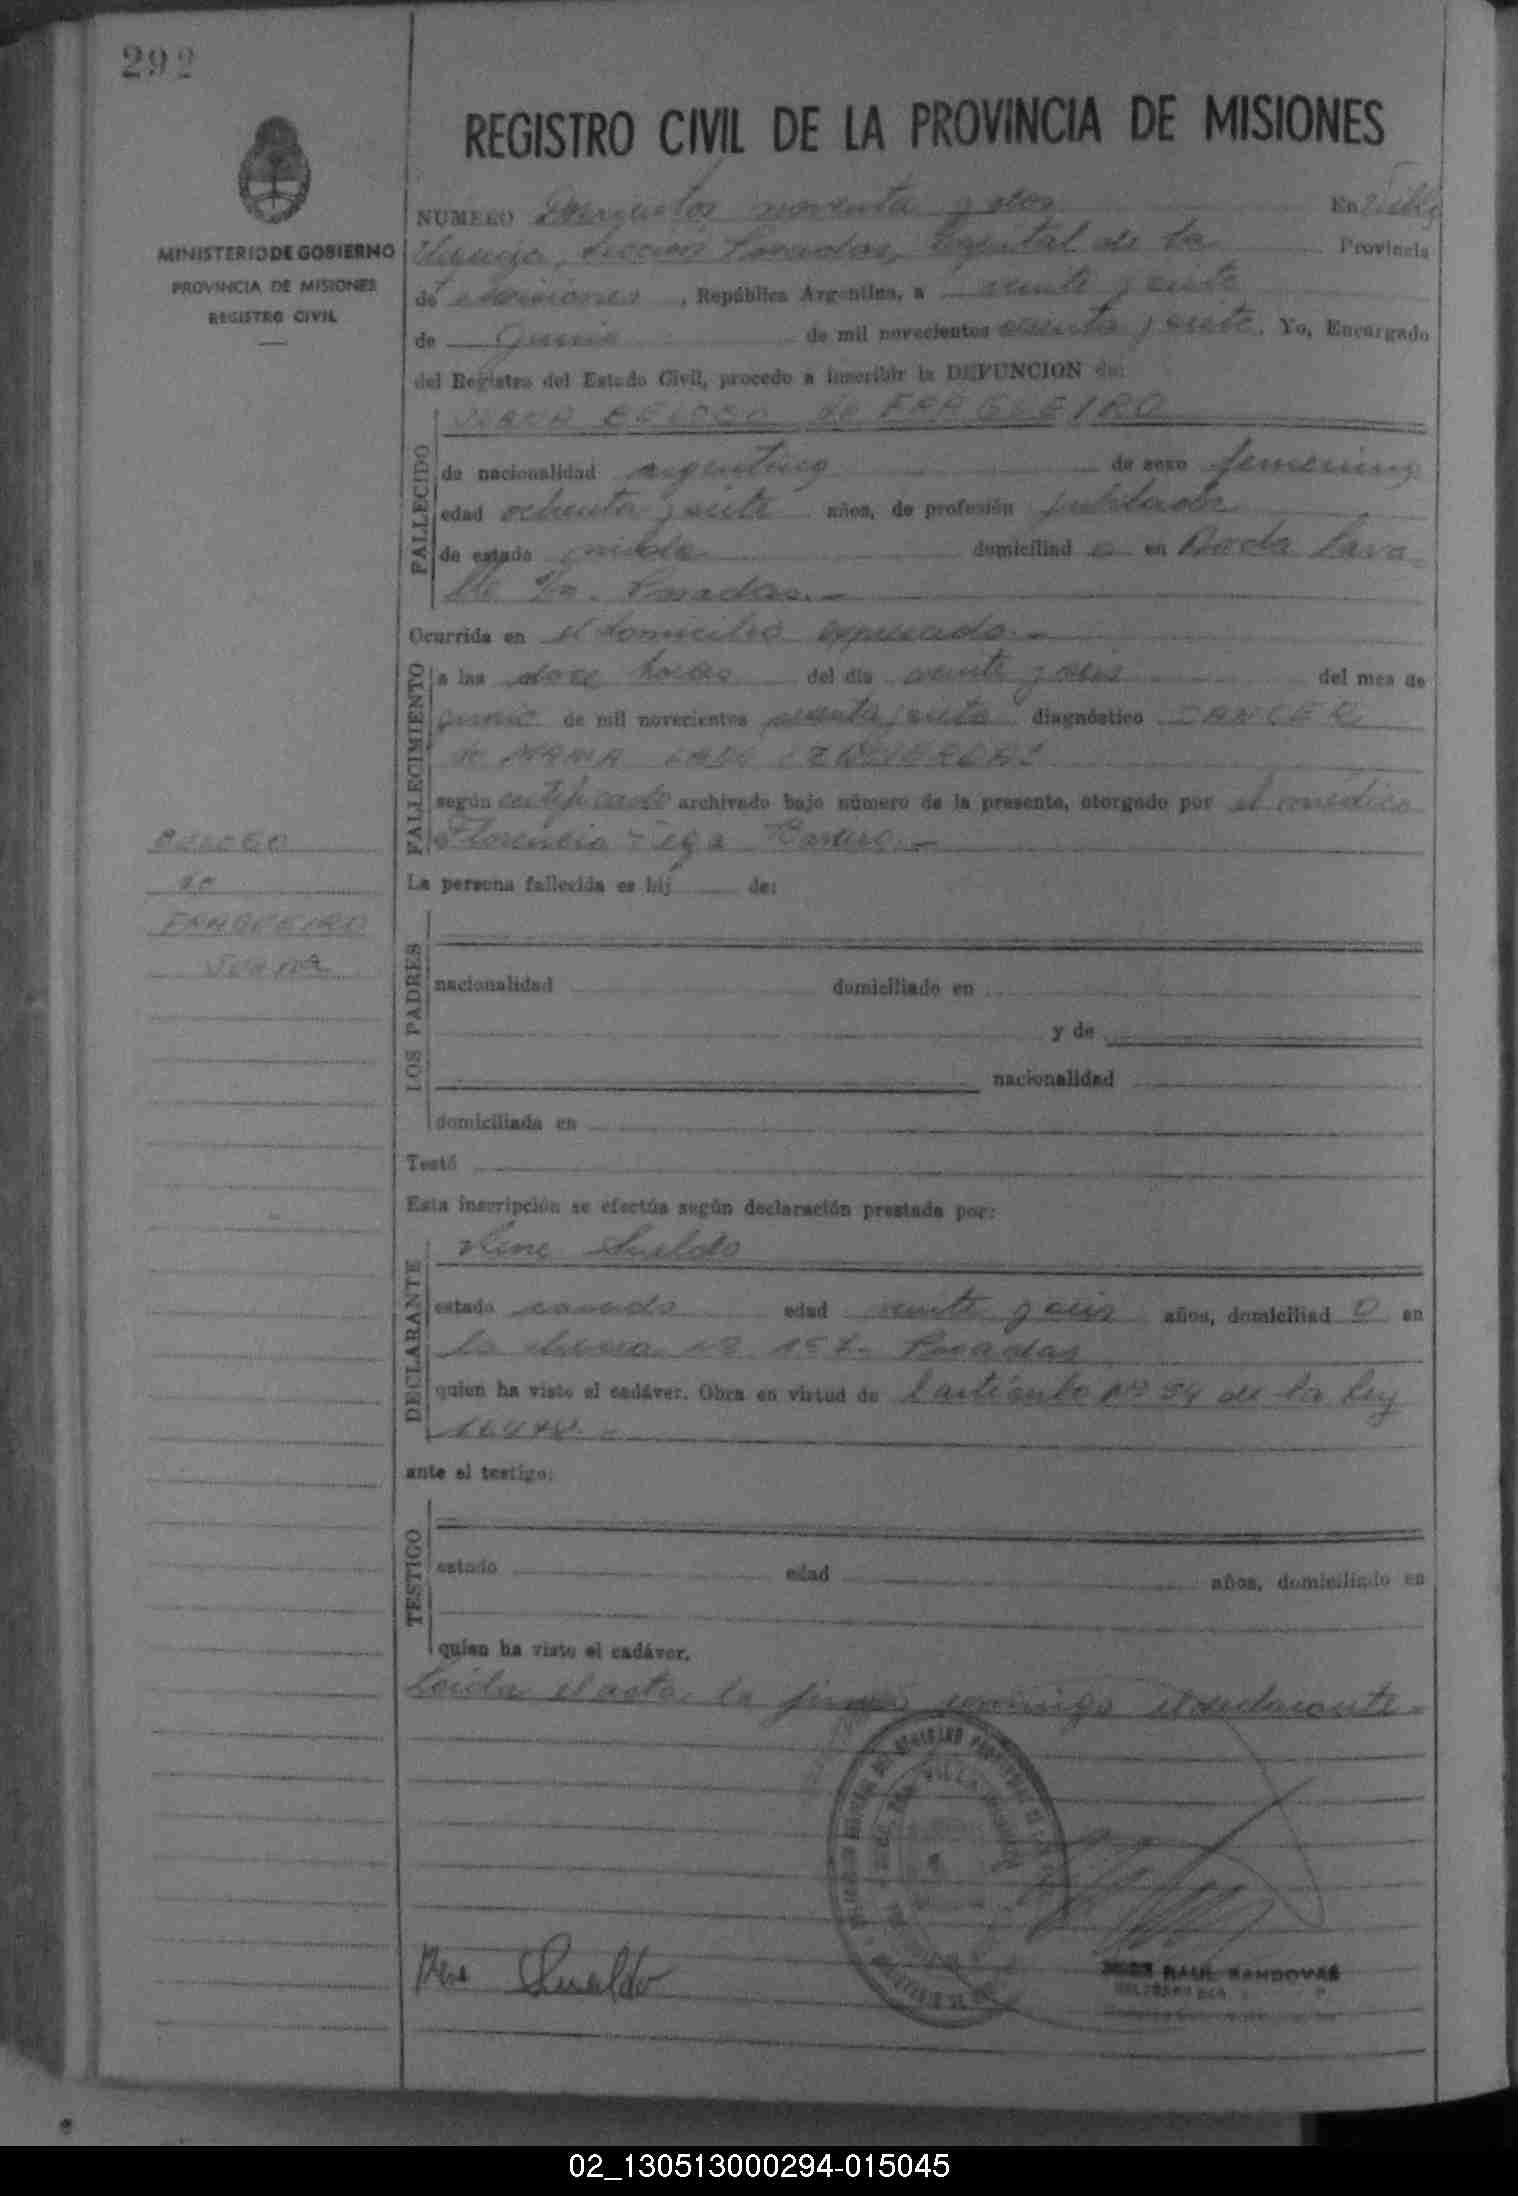 292
REGISTRO CIVIL DE LA PROVINCIA DE MISIONES
MINISTERIO DE GOBIERNO
PROVINCIA DE MISIONES
REGISTRO CIVIL
NUMERO Doscientos noventa y dos En Villa
Urquiza, Sección Posadas, Capital de la Provincia
de Misiones, República Argentina, a veinte y siete
de Junio de mil novecientos y siete. Yo, Encargado
del Registro del Estado Civil, procedo a inscribir la DEFUNCION de:
JUANA de FRAGUEIRO
FALLECIDO
de nacionalidad argentina de sexo femenino
edad ochenta y siete años, de profesión jubilada
de estado viuda domiciliad a en Avda Lava-
lle s/n. Posadas.-
Ocurrida en el domicilio expresado.-
FALLECIMIENTO
a las doce horas del día veinte y seis del mes de
junio de mil novecientos y siete diagnóstico CANCER
de MAMA LADO IZQUIERDO
según certificado archivado bajo número de la presente, otorgado por el médico
Florencio Vega
La persona fallecida es hij de:
BELOSO
de
FRAGUEIRO
JUANA
LOS PADRES
nacionalidad domiciliado en
y de
nacionalidad
domiciliada en
Testó
Esta inscripción se efectúa según declaración prestada por:
DECLARANTE
Rene Sueldo
estado casado edad veinte y seis años, domiciliad o en
la chacra 157- Posadas
quien ha visto el cadáver. Obra en virtud de l artículo Nº 54 de la ley
ante el testigo:
TESTIGO
estado edad años, domiciliado en
quien ha visto el cadáver.
Leída el acta la firma conmigo el declarante.-
Rene Sueldo
RAUL SANDOVAL
02_130513000294-015045